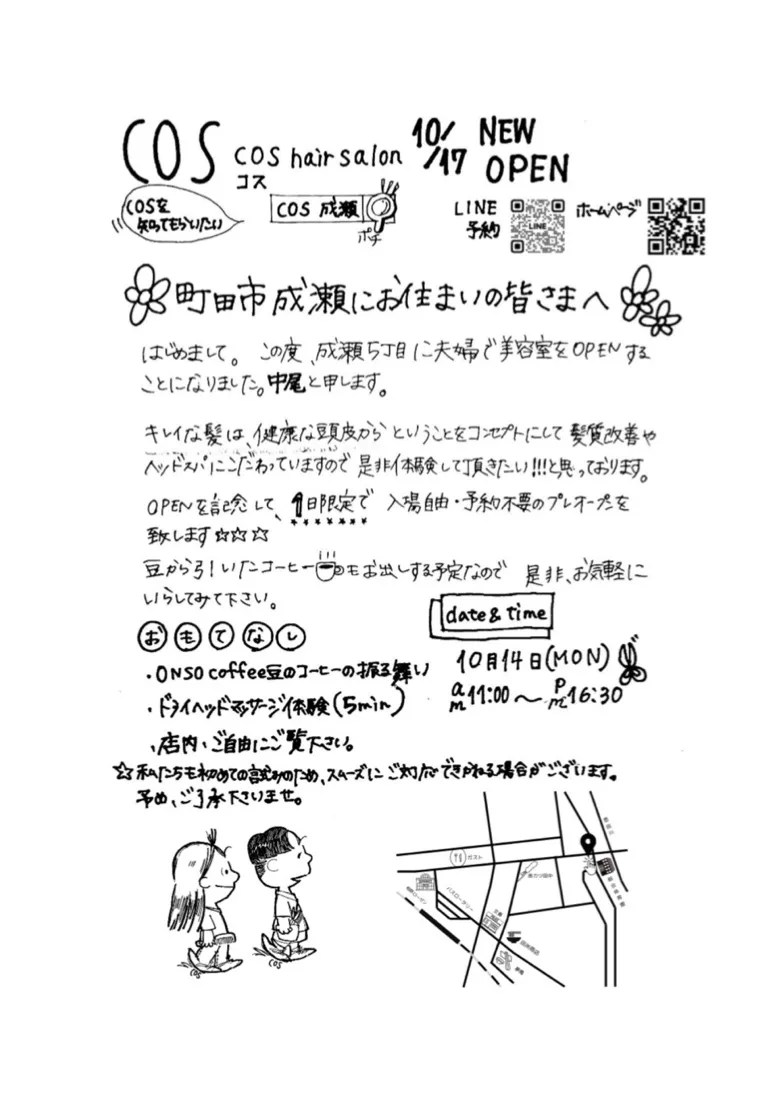 COS
COS hair salon
コス
10/17 NEW OPEN
COSを
知ってもらいたい
COS 成瀬
ポチ
LINE
予約
LINE
ホームページ
町田市成瀬にお住まいの皆さまへ
はじめまして。この度、成瀬5丁目に夫婦で美容室をOPENする
ことになりました。中尾と申します。
キレイな髪は、健康な頭皮からということをコンセプトにして髪質改善や
ヘッドスパにこだわっていますので是非体験して頂きたい!!!と思っております。
OPENを記念して、1日限定で 入場自由・予約不要のプレオープンを
致します☆☆☆
豆から引いたコーヒーもお出しする予定なので 是非、お気軽に
いらしてみて下さい。
おもてなし
・ONSO coffee豆のコーヒーの振る舞い
・ドライヘッドマッサージ体験(5min)
・店内、ご自由にご覧下さい。
date & time
10月14日(MON)
am11:00〜pm16:30
☆私たちも初めての試みのため、スムーズにご対応できかねる場合がございます。
予め、ご了承下さいませ。
ガスト
バスロータリー
COS
COS